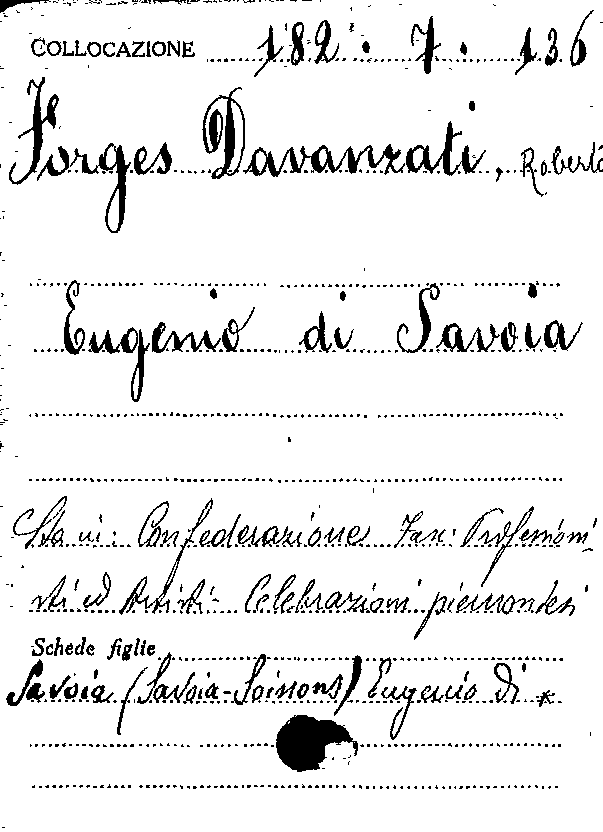 COLLOCAZIONE 182 . 7 . 136
Forges Davanzati, Roberto
Eugenio di Savoia
Sta in: Confederazione Fasc: Professioni-
sti ed Artisti - Celebrazioni piemontesi
Schede figlie
Savoia (Savoia-Soissons) Eugenio di *